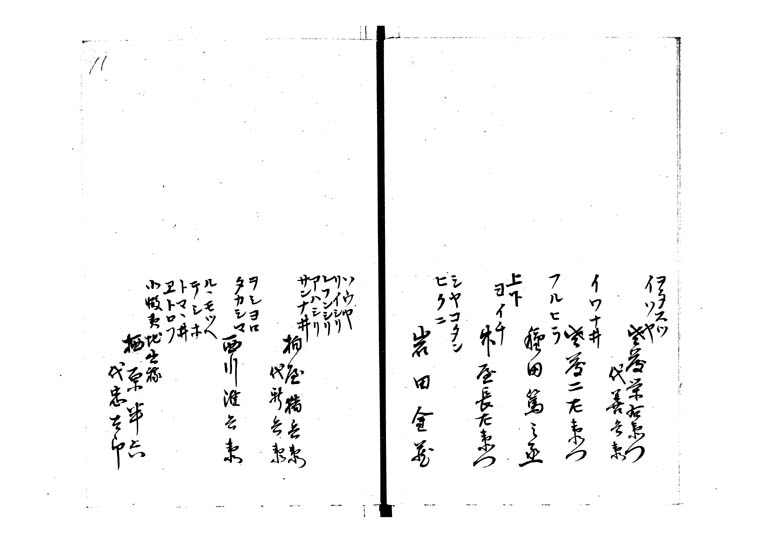 ヲタスツ
イソヤ
佐藤栄右衛門
代善兵衛
イワナ井
佐藤仁左衛門
フルヒラ
種田篤之丞
上下
ヨイチ
竹屋長左衛門
シヤコタン
ヒクニ
岩田金蔵
ソウヤ
リイシリ
レフンシリ
アハシリ
サンナ井
柏屋猪兵衛
代新兵衛
ヲシヨロ
タカシマ
西川准兵衛
ルヽモツヘ
テシホ
トマヽ井
ヱトロフ
小蝦夷地
栖原半六
代忠吉